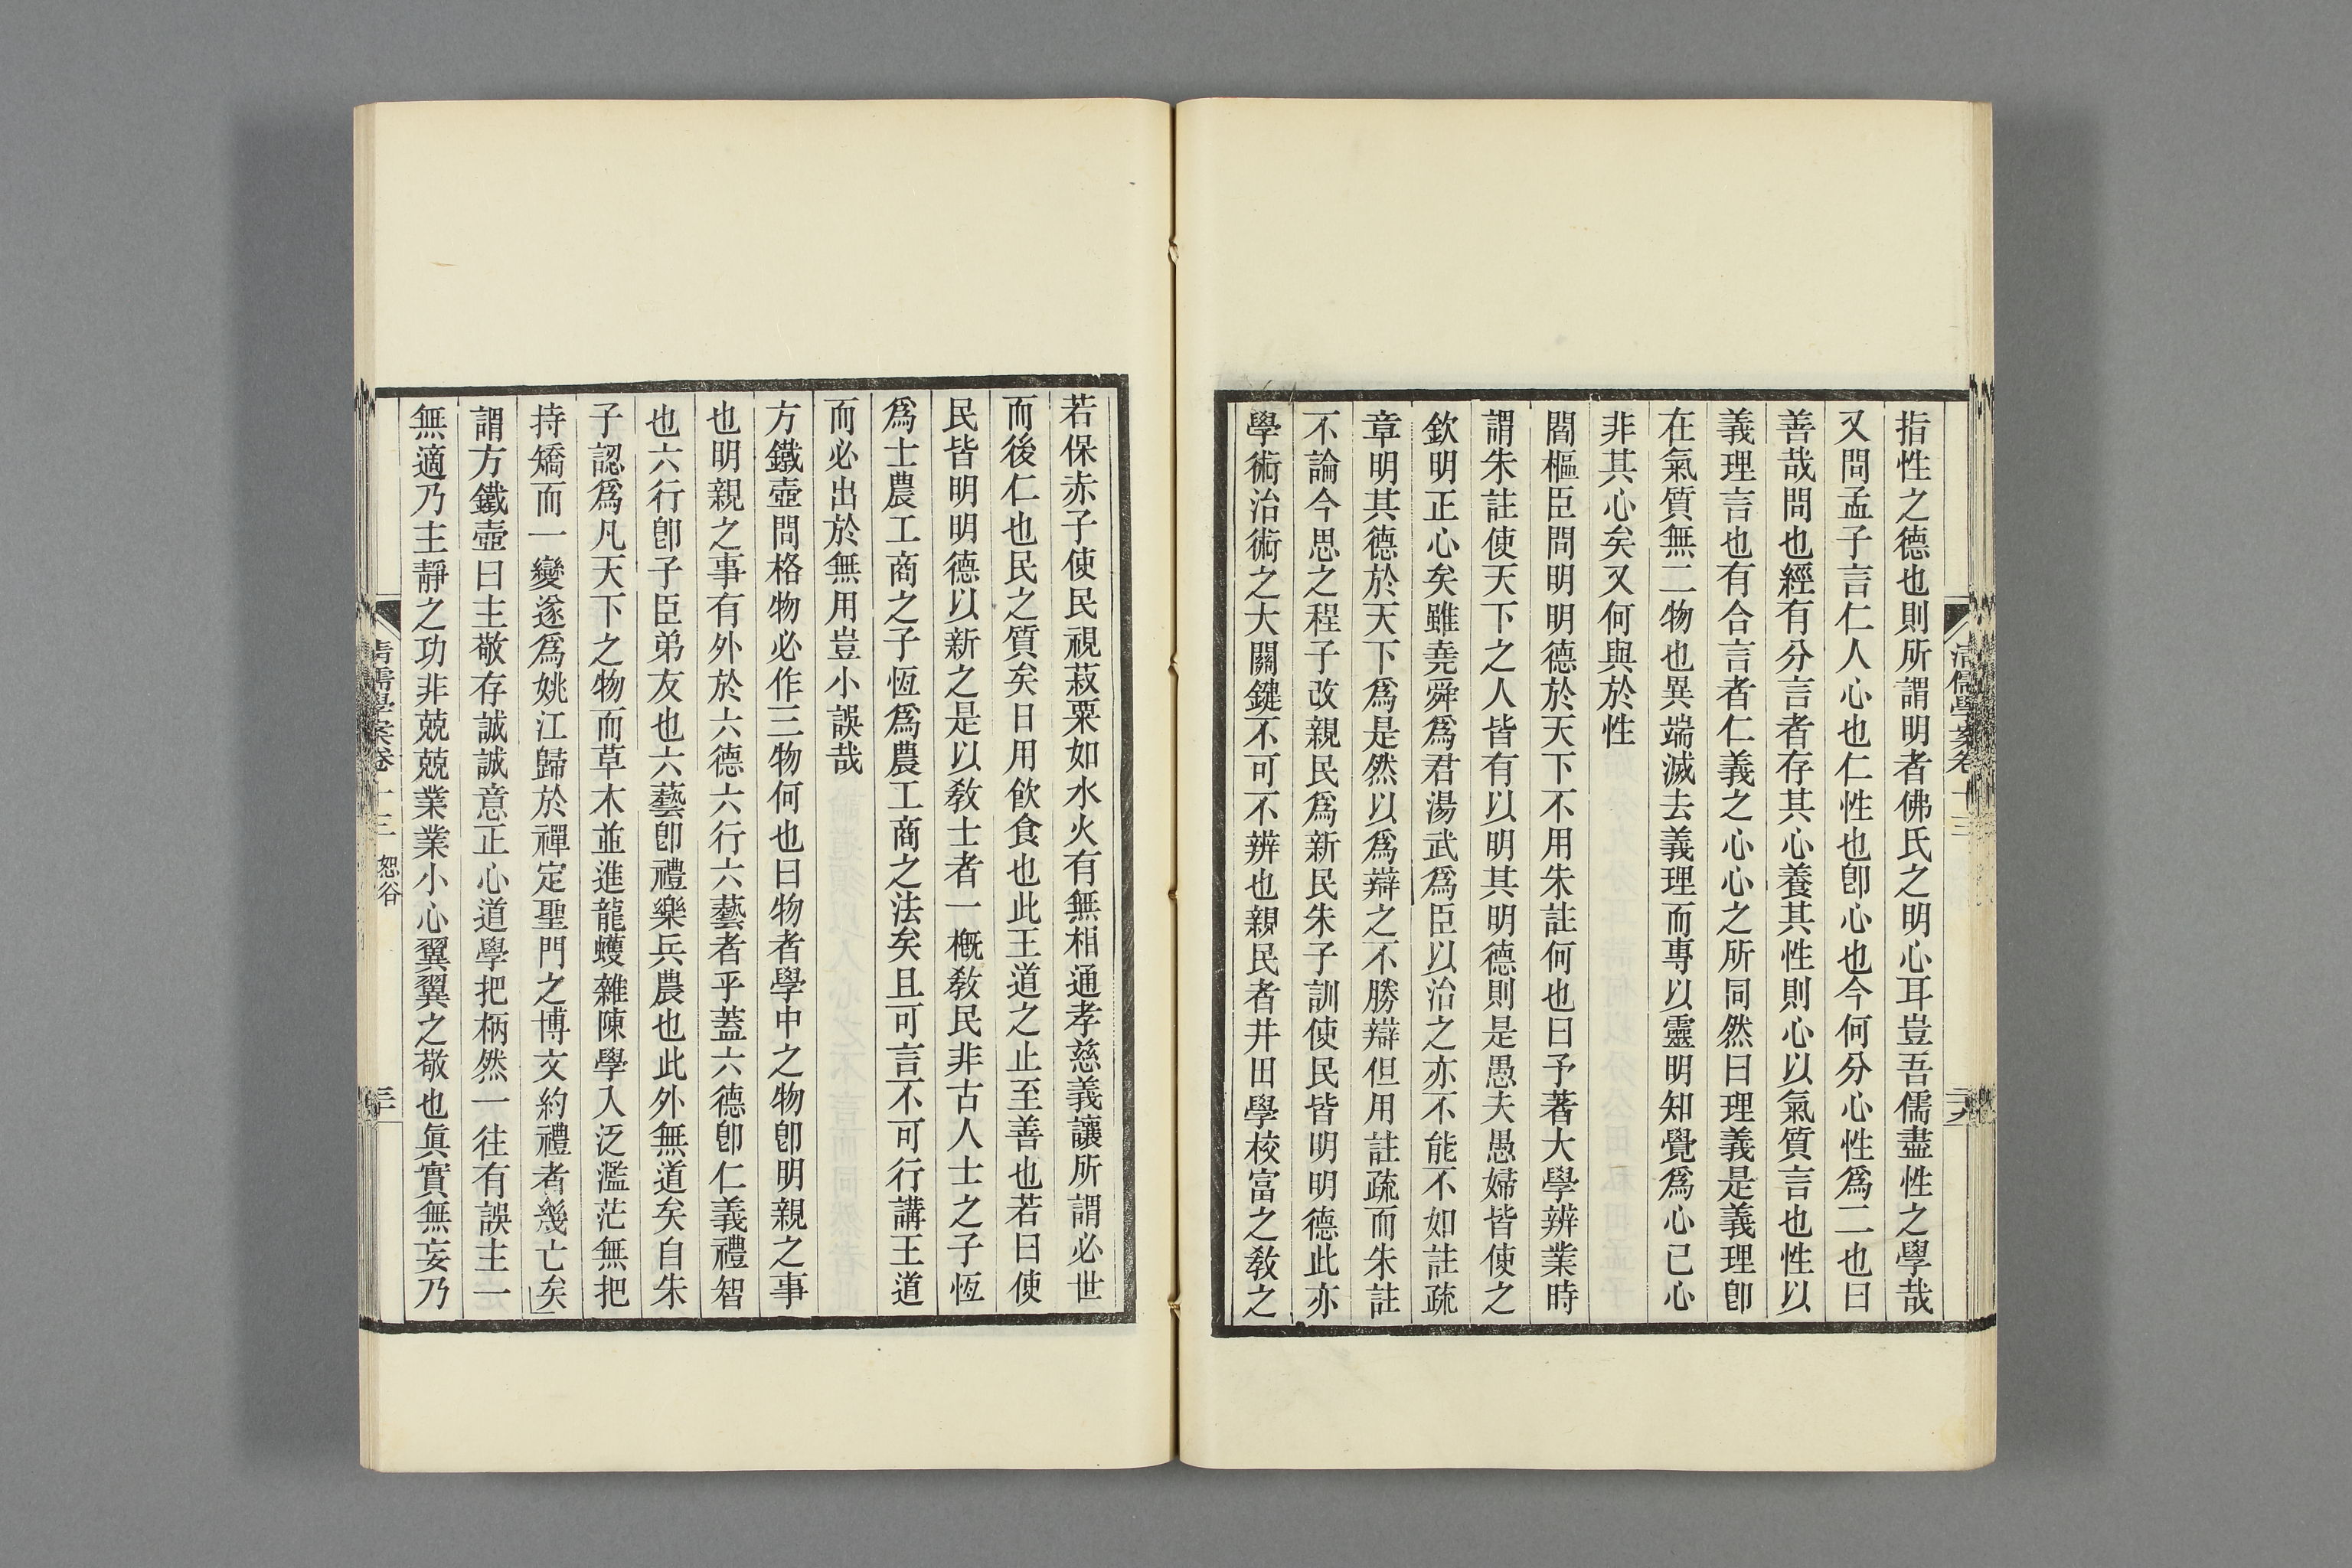 清儒學案卷十三
指性之德也則所謂明者佛氏之明心耳豈吾儒盡性之學哉
又問孟子言仁人心也仁性也卽心也今何分心性爲二也曰
善哉問也經有分言者存其心養其性則心以氣質言也性以
義理言也有合言者仁義之心心之所同然曰理義是義理卽
在氣質無二物也異端滅去義理而專以靈明知覺爲心已心
非其心矣又何與於性
閻樞臣問明明德於天下不用朱註何也曰予著大學辨業時
謂朱註使天下之人皆有以明其明德則是愚夫愚婦皆使之
欽明正心矣雖堯舜爲君湯武爲臣以治之亦不能不如註疏
章明其德於天下爲是然以爲辯之不勝辯但用註疏而朱註
不論今思之程子改親民爲新民朱子訓使民皆明明德此亦
學術治術之大關鍵不可不辨也親民者井田學校富之敎之
若保赤子使民視菽粟如水火有無相通孝慈義讓所謂必世
而後仁也民之質矣日用飮食也此王道之止至善也若曰使
民皆明明德以新之是以敎士者一槪敎民非古人士之子恆
爲士農工商之子恆爲農工商之法矣且可言不可行講王道
而必出於無用豈小誤哉
方鐵壺問格物必作三物何也曰物者學中之物卽明親之事
也明親之事有外於六德六行六藝者乎蓋六德卽仁義禮智
也六行卽子臣弟友也六藝卽禮樂兵農也此外無道矣自朱
子認爲凡天下之物而草木並進龍蠖雜陳學入泛濫茫無把
持矯而一變遂爲姚江歸於禪定聖門之博文約禮者幾亡矣
謂方鐵壺曰主敬存誠誠意正心道學把柄然一往有誤主一
無適乃主靜之功非兢兢業業小心翼翼之敬也眞實無妄乃
清儒學案卷十三 恕谷 三十